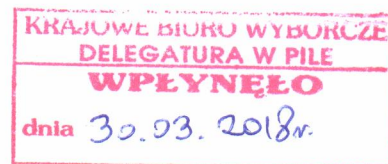 KRAJOWE BIURO WYBORCZE
DELEGATURA W PILE
WPŁYNĘŁO
dnia 30.03.2018r.